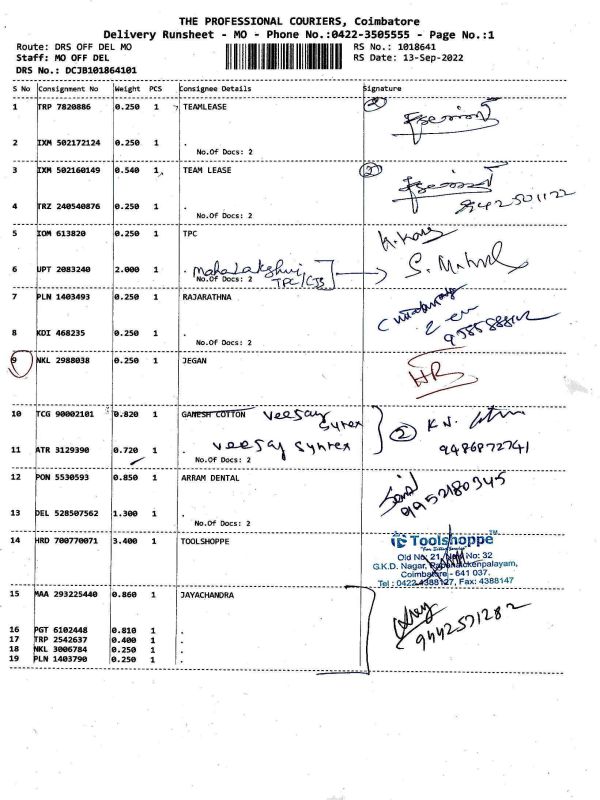 THE PROFESSIONAL COURIERS, Coimbatore
Delivery Runsheet - MO - Phone No.:0422-3505555 - Page No.:1
Route: DRS OFF DEL MO RS No.: 1018641
Staff: MO OFF DEL RS Date: 13-Sep-2022
DRS No.: DCJB101864101
S No Consignment No Weight PCS Consignee Details Signature
1 TRP 7820886 0.250 1 TEAMLEASE
2 IXM 502172124 0.250 1 .
No.Of Docs: 2
3 IXM 502160149 0.540 1 TEAM LEASE 2
4 TRZ 240540876 0.250 1 . 9442501122
No.Of Docs: 2
5 IOM 613820 0.250 1 TPC
6 UPT 2083240 2.000 1 . Mahalakshmi
No.Of Docs: 2 TPC/CJB
7 PLN 1403493 0.250 1 RAJARATHNA
8 KDI 468235 0.250 1 .
No.Of Docs: 2
9 NKL 2988038 0.250 1 JEGAN HR
10 TCG 90002101 0.820 1 GANESH COTTON Veejay Syntex
11 ATR 3129390 0.720 1 . Veejay Syntex 2 9486872741
No.Of Docs: 2
12 PON 5530593 0.850 1 ARRAM DENTAL 9952180345
13 DEL 528507562 1.300 1 .
No.Of Docs: 2
14 HRD 700770071 3.400 1 TOOLSHOPPE Toolshoppe™
Old No: 21, New No: 32
G.K.D. Nagar, Pappanaickenpalayam,
Coimbatore - 641 037.
Tel : 0422-4388127, Fax: 4388147
15 MAA 293225440 0.860 1 JAYACHANDRA
9442571282
16 PGT 6102448 0.810 1 .
17 TRP 2542637 0.400 1 .
18 NKL 3006784 0.250 1 .
19 PLN 1403790 0.250 1 .